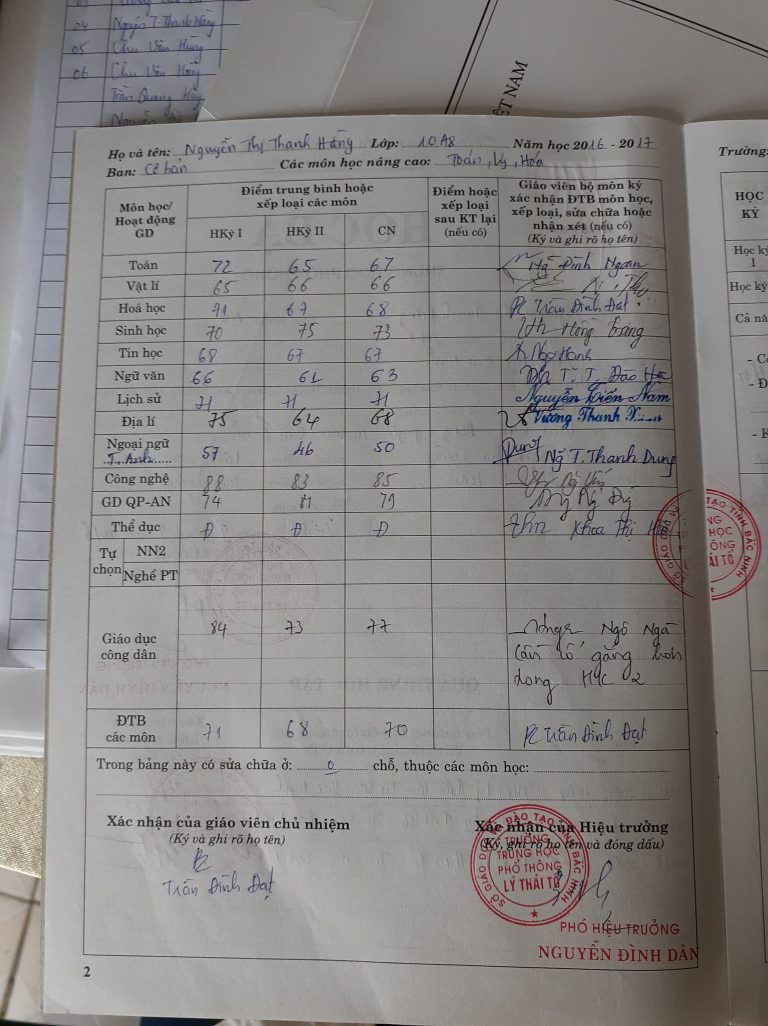 04 Nguyễn T. Thanh Hằng
05 Chu Văn Hùng
06 Chu Văn
Trần Quang Huy
ỆT NAM
Họ và tên: Nguyễn Thị Thanh Hằng Lớp: 10A8 Năm học 2016 - 2017
Ban: Cơ bản Các môn học nâng cao: Toán, Lý, Hóa
Môn học/ Hoạt động GD
Điểm trung bình hoặc xếp loại các môn
HKỳ I HKỳ II CN
Điểm hoặc xếp loại sau KT lại (nếu có)
Giáo viên bộ môn ký xác nhận ĐTB môn học, xếp loại, sửa chữa hoặc nhận xét (nếu có)
(Ký và ghi rõ họ tên)
Toán 72 65 67 Ngô Đình Ngan
Vật lí 65 66 66
Hoá học 71 67 68 Trần Đình Đạt
Sinh học 70 75 73 Hồng
Tin học 68 67 67 Ngọ Hạnh
Ngữ văn 66 61 63 T. T. Đào
Lịch sử 71 71 71 Nguyễn Tiến Năm
Địa lí 75 64 68 Vương Thanh
Ngoại ngữ T. Anh 57 46 50 Dung Ngô T. Thanh Dung
Công nghệ 88 83 85
GD QP-AN 74 79
Thể dục Đ Đ Đ Khoa Thị
Tự chọn NN2
Nghề PT
Giáo dục công dân 84 73 77 Ngô Nga
cần cố gắng hơn
trong
ĐTB các môn 71 68 70 Trần Đình Đạt
Trong bảng này có sửa chữa ở: 0 chỗ, thuộc các môn học:
Xác nhận của giáo viên chủ nhiệm
(Ký và ghi rõ họ tên)
Trần Đình Đạt
Xác nhận của Hiệu trưởng
(Ký, ghi rõ họ tên và đóng dấu)
SỞ GIÁO DỤC VÀ ĐÀO TẠO TỈNH BẮC NINH
TRƯỜNG
TRUNG HỌC
PHỔ THÔNG
LÝ THÁI TỔ
PHÓ HIỆU TRƯỞNG
NGUYỄN ĐÌNH DÂN
2
Trường:
HỌC KỲ
Học kỳ I
Học kỳ
Cả nă
TẠO TỈNH BẮC NINH
NG
HỌC
ÔNG
ÁI TỔ